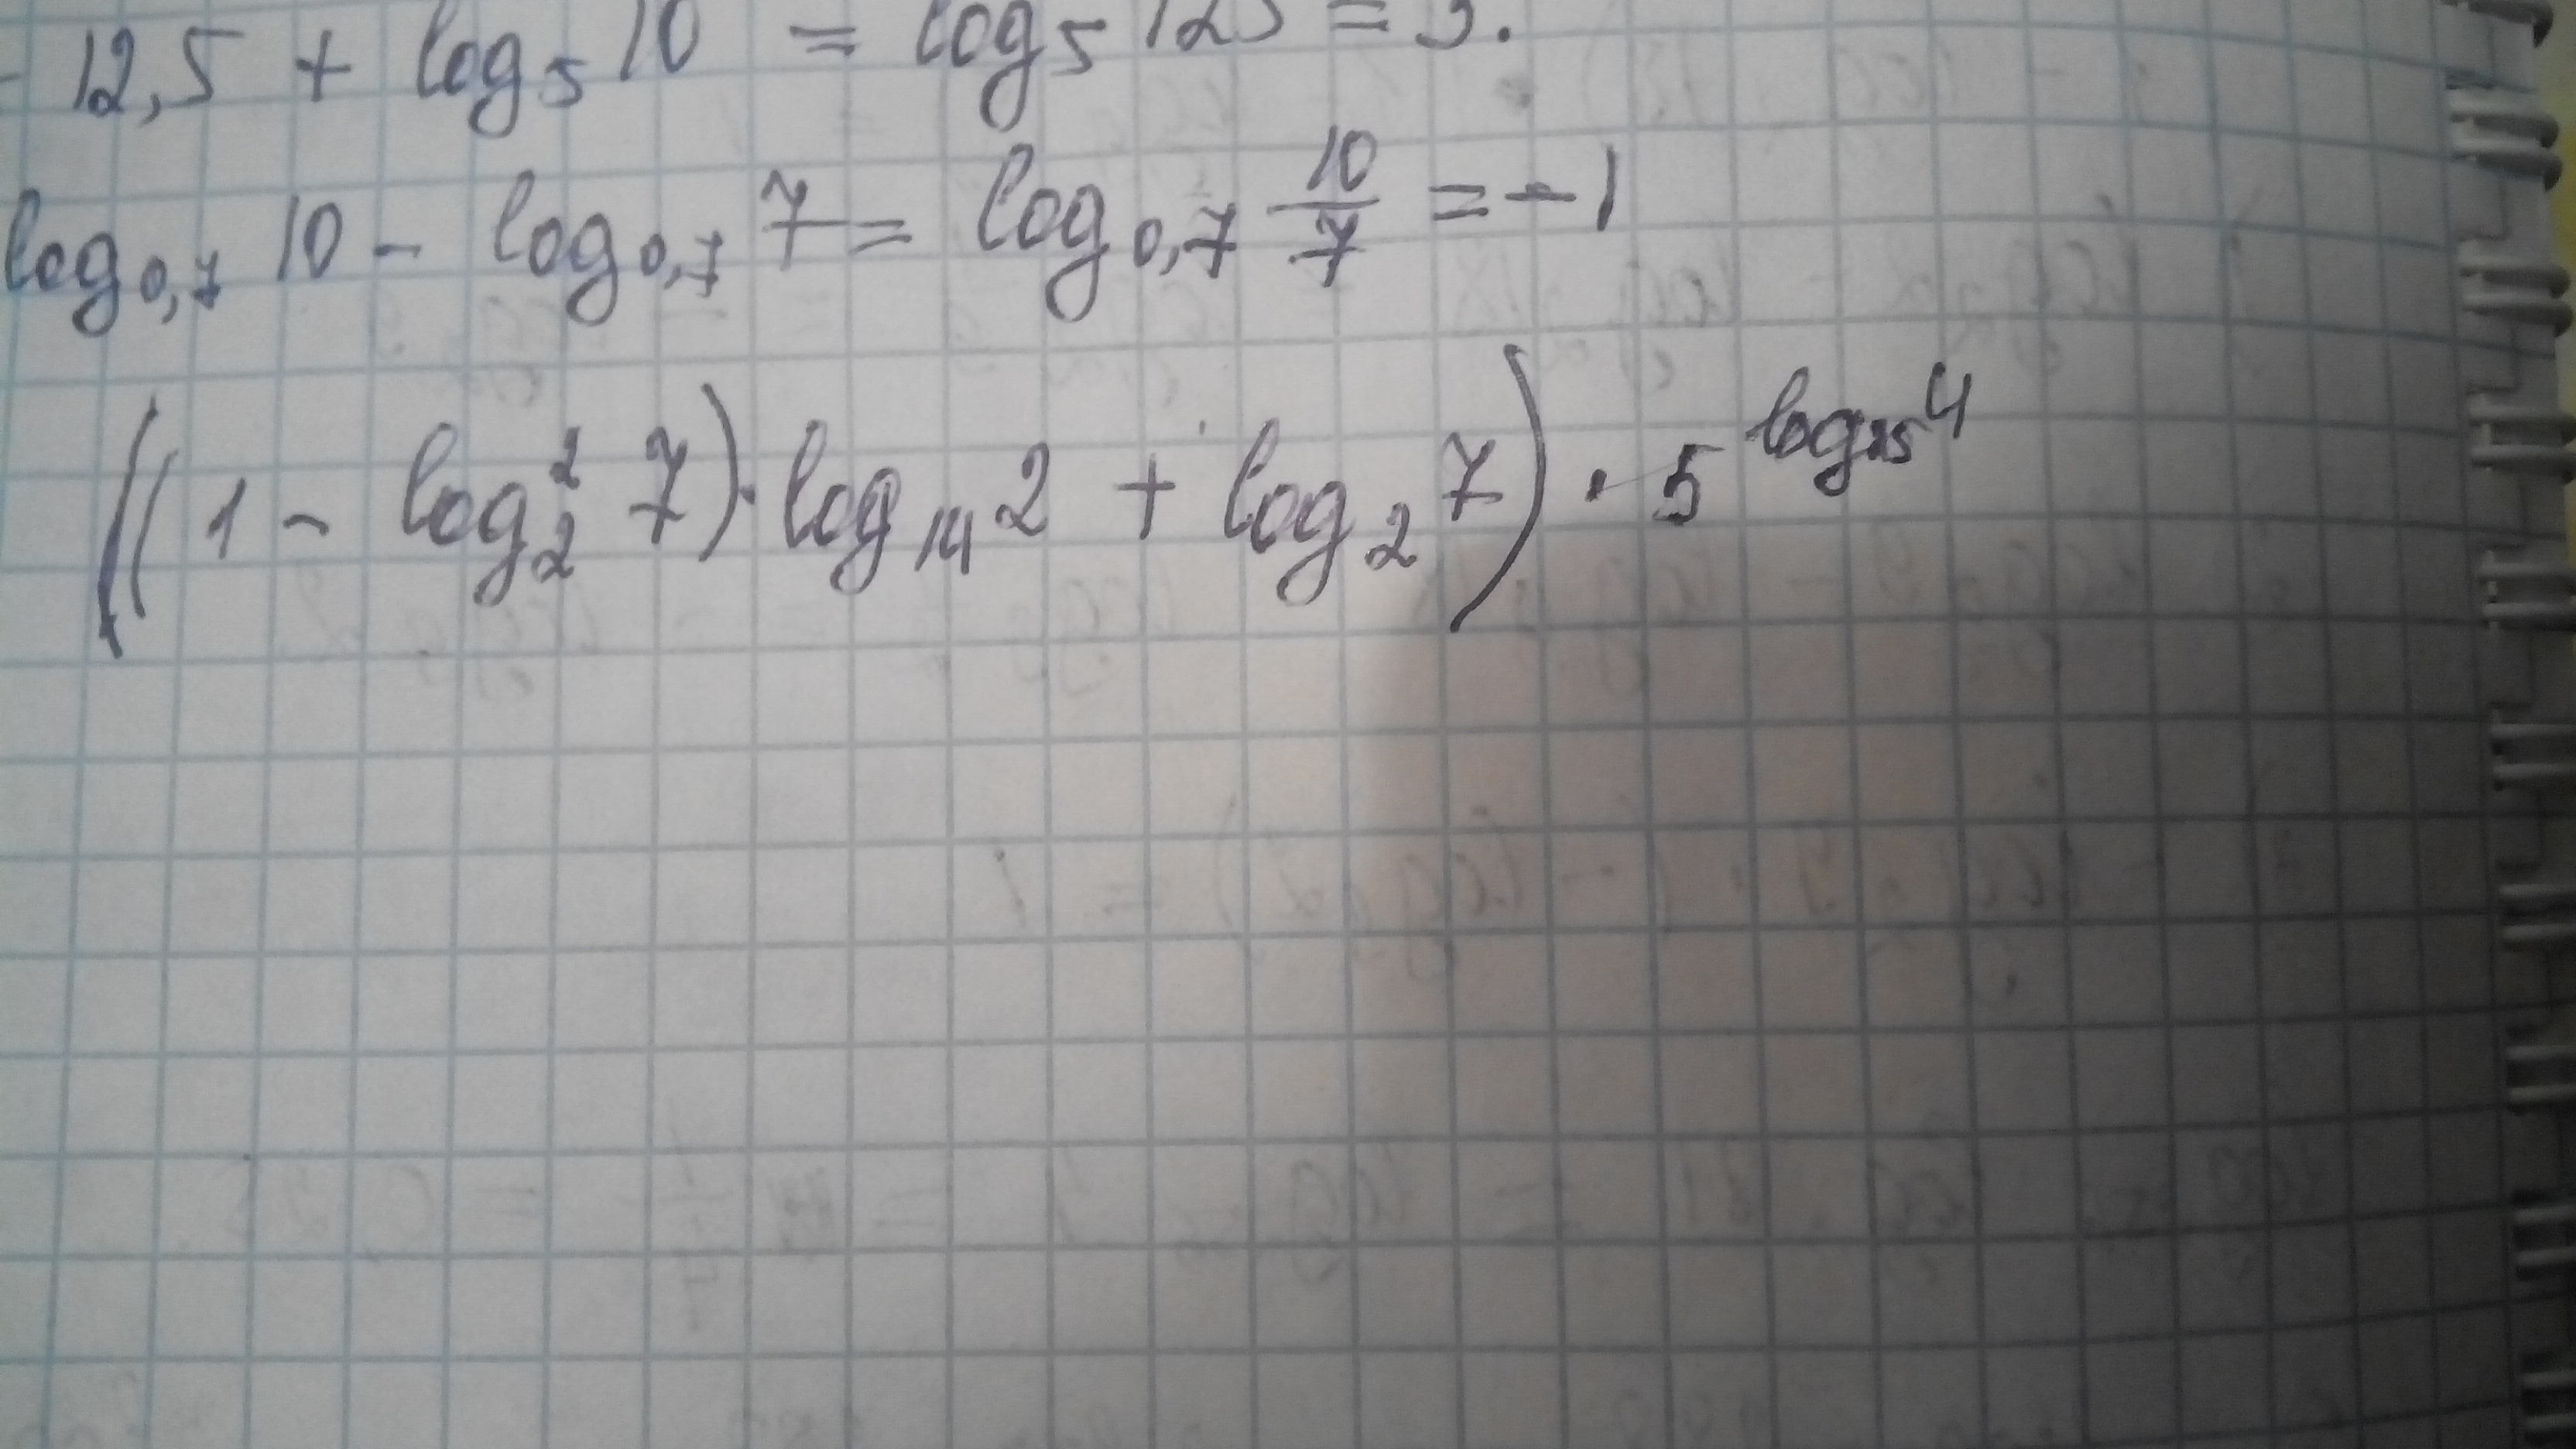 12,5 + log₅ 10 = log₅ 125 = 3.
log₀,₇ 10 - log₀,₇ 7 = log₀,₇ 10/7 = -1
((1 - log₂² 7) · log₁₄ 2 + log₂ 7) · 5^(log₂₅ 4)